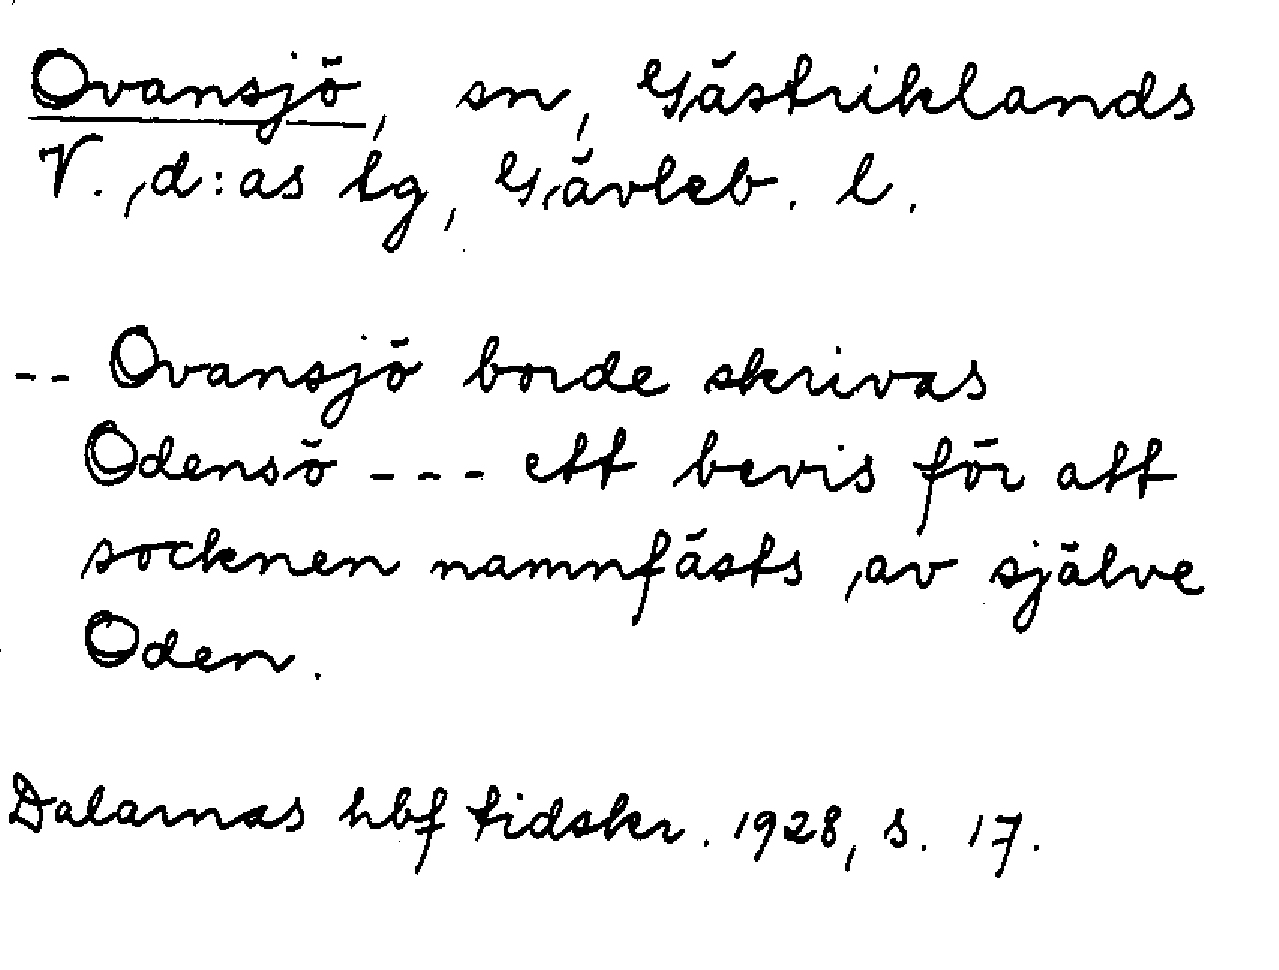 Ovansjö, sn, Gästriklands
V., d:as lg, Gävleb. l.
-- Ovansjö borde skrivas
Odensö --- ett bevis för att
socknen namnfästs, av själve
Oden.
Dalarnas hbf tidskr. 1928, s. 17.